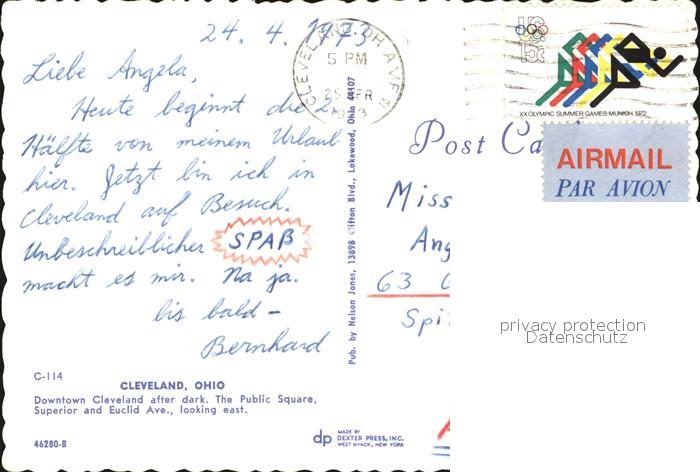 24. 4. 1973
Liebe Angela,
Heute beginnt die 2.
Hälfte von meinem Urlaub
hier. Jetzt bin ich in
Cleveland auf Besuch.
Unbeschreiblicher SPAß
macht es mir. Na ja.
bis bald –
Bernhard
C-114
CLEVELAND, OHIO
Downtown Cleveland after dark. The Public Square,
Superior and Euclid Ave., looking east.
46280-B
dp MADE BY
DEXTER PRESS, INC.
WEST NYACK, NEW YORK
Pub. by Nelson Jones, 13898 Clifton Blvd., Lakewood, Ohio 44107
CLEVELAND, OH
5 PM
25 APR
1973
US
15c
XX OLYMPIC SUMMER GAMES MUNICH 1972
AIRMAIL
PAR AVION
Post
Miss
Ang
63
Spi
privacy protection
Datenschutz